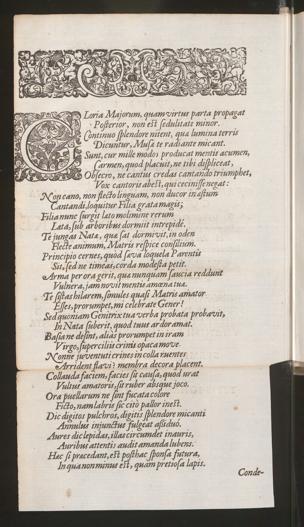 Gloria Majorum, quam virtus parta propagat
Posterior, non est sedulitate minor.
Continuo splendore nitent, qua lumina terris
Dicuntur, Musa te radiante micant.
Sunt, cur mille modos producat mentis acumen,
Carmen, quod placuit, ne tibi displiceat,
Obsecro, ne cantus credas cantando triumphet,
Vox cantoris abest, qui cecinisse negat:
Non cano, non flecto linguam, non ducor in astum
Cantandi, loquitur Filia grata magis;
Filia nunc surgit lato molimine rerum
Lata, sub arboribus dormit intrepidè.
Te jungas Nata, quæ sat dormivit, in oden
Flecte animum, Matris respice consilium.
Principio cernes, quod sæva loquela Parentis
Sit, sed ne timeas, corda modesta petit.
Arma per ora gerit, qua nunquam saucia reddunt
Vulnera, jam novit mentis amœna tua.
Te sistas hilarem, simules quasi Matris amator
Esses, prorumpet, mi celebrate Gener!
Sed quoniam Genitrix tua verba probata probavit,
In Nata suberit, quod tuus ardor amat.
Basia ne desint, alias prorumpet in iram
Virgo, superciliis crinis opaca move.
Nonne juventuti crines in colla ruentes
Arrident flavi? membra decora placent.
Collauda faciem, facies sit causa, quod urat
Vultus amatoris, sit ruber absque joco.
Ora puellarum ne sint fucata colore
Ficto, nam labris sic citò pallor inest.
Dic digitos pulchros, digitis splendore micanti
Annulus injunctus fulgeat assiduò.
Aures dic lepidas, illas circumdet inauris,
Auribus attentis audit amanda lubens.
Hæc si præcedant, est posthac sponsa futura,
In qua non minus est, quàm pretiosa lapis.
Conde-